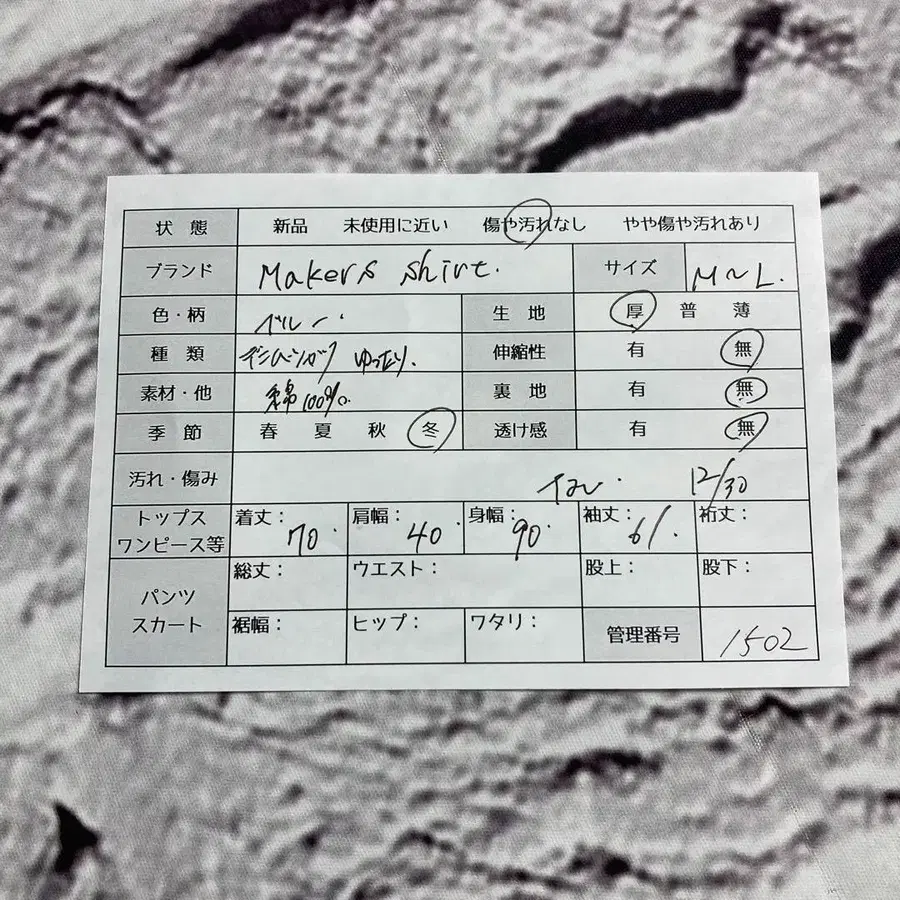 状態 新品 未使用に近い 傷や汚れなし やや傷や汚れあり
ブランド Makers shirt. サイズ M～L.
色・柄 ブルー. 生地 厚 普 薄
種類 ゆったり. 伸縮性 有 無
素材・他 綿100%. 裏地 有 無
季節 春 夏 秋 冬 透け感 有 無
汚れ・傷み なし. 12/30
トップス ワンピース等 着丈: 70. 肩幅: 40. 身幅: 90. 袖丈: 61. 裄丈:
パンツ スカート 総丈: ウエスト: 股上: 股下:
裾幅: ヒップ: ワタリ: 管理番号 1502